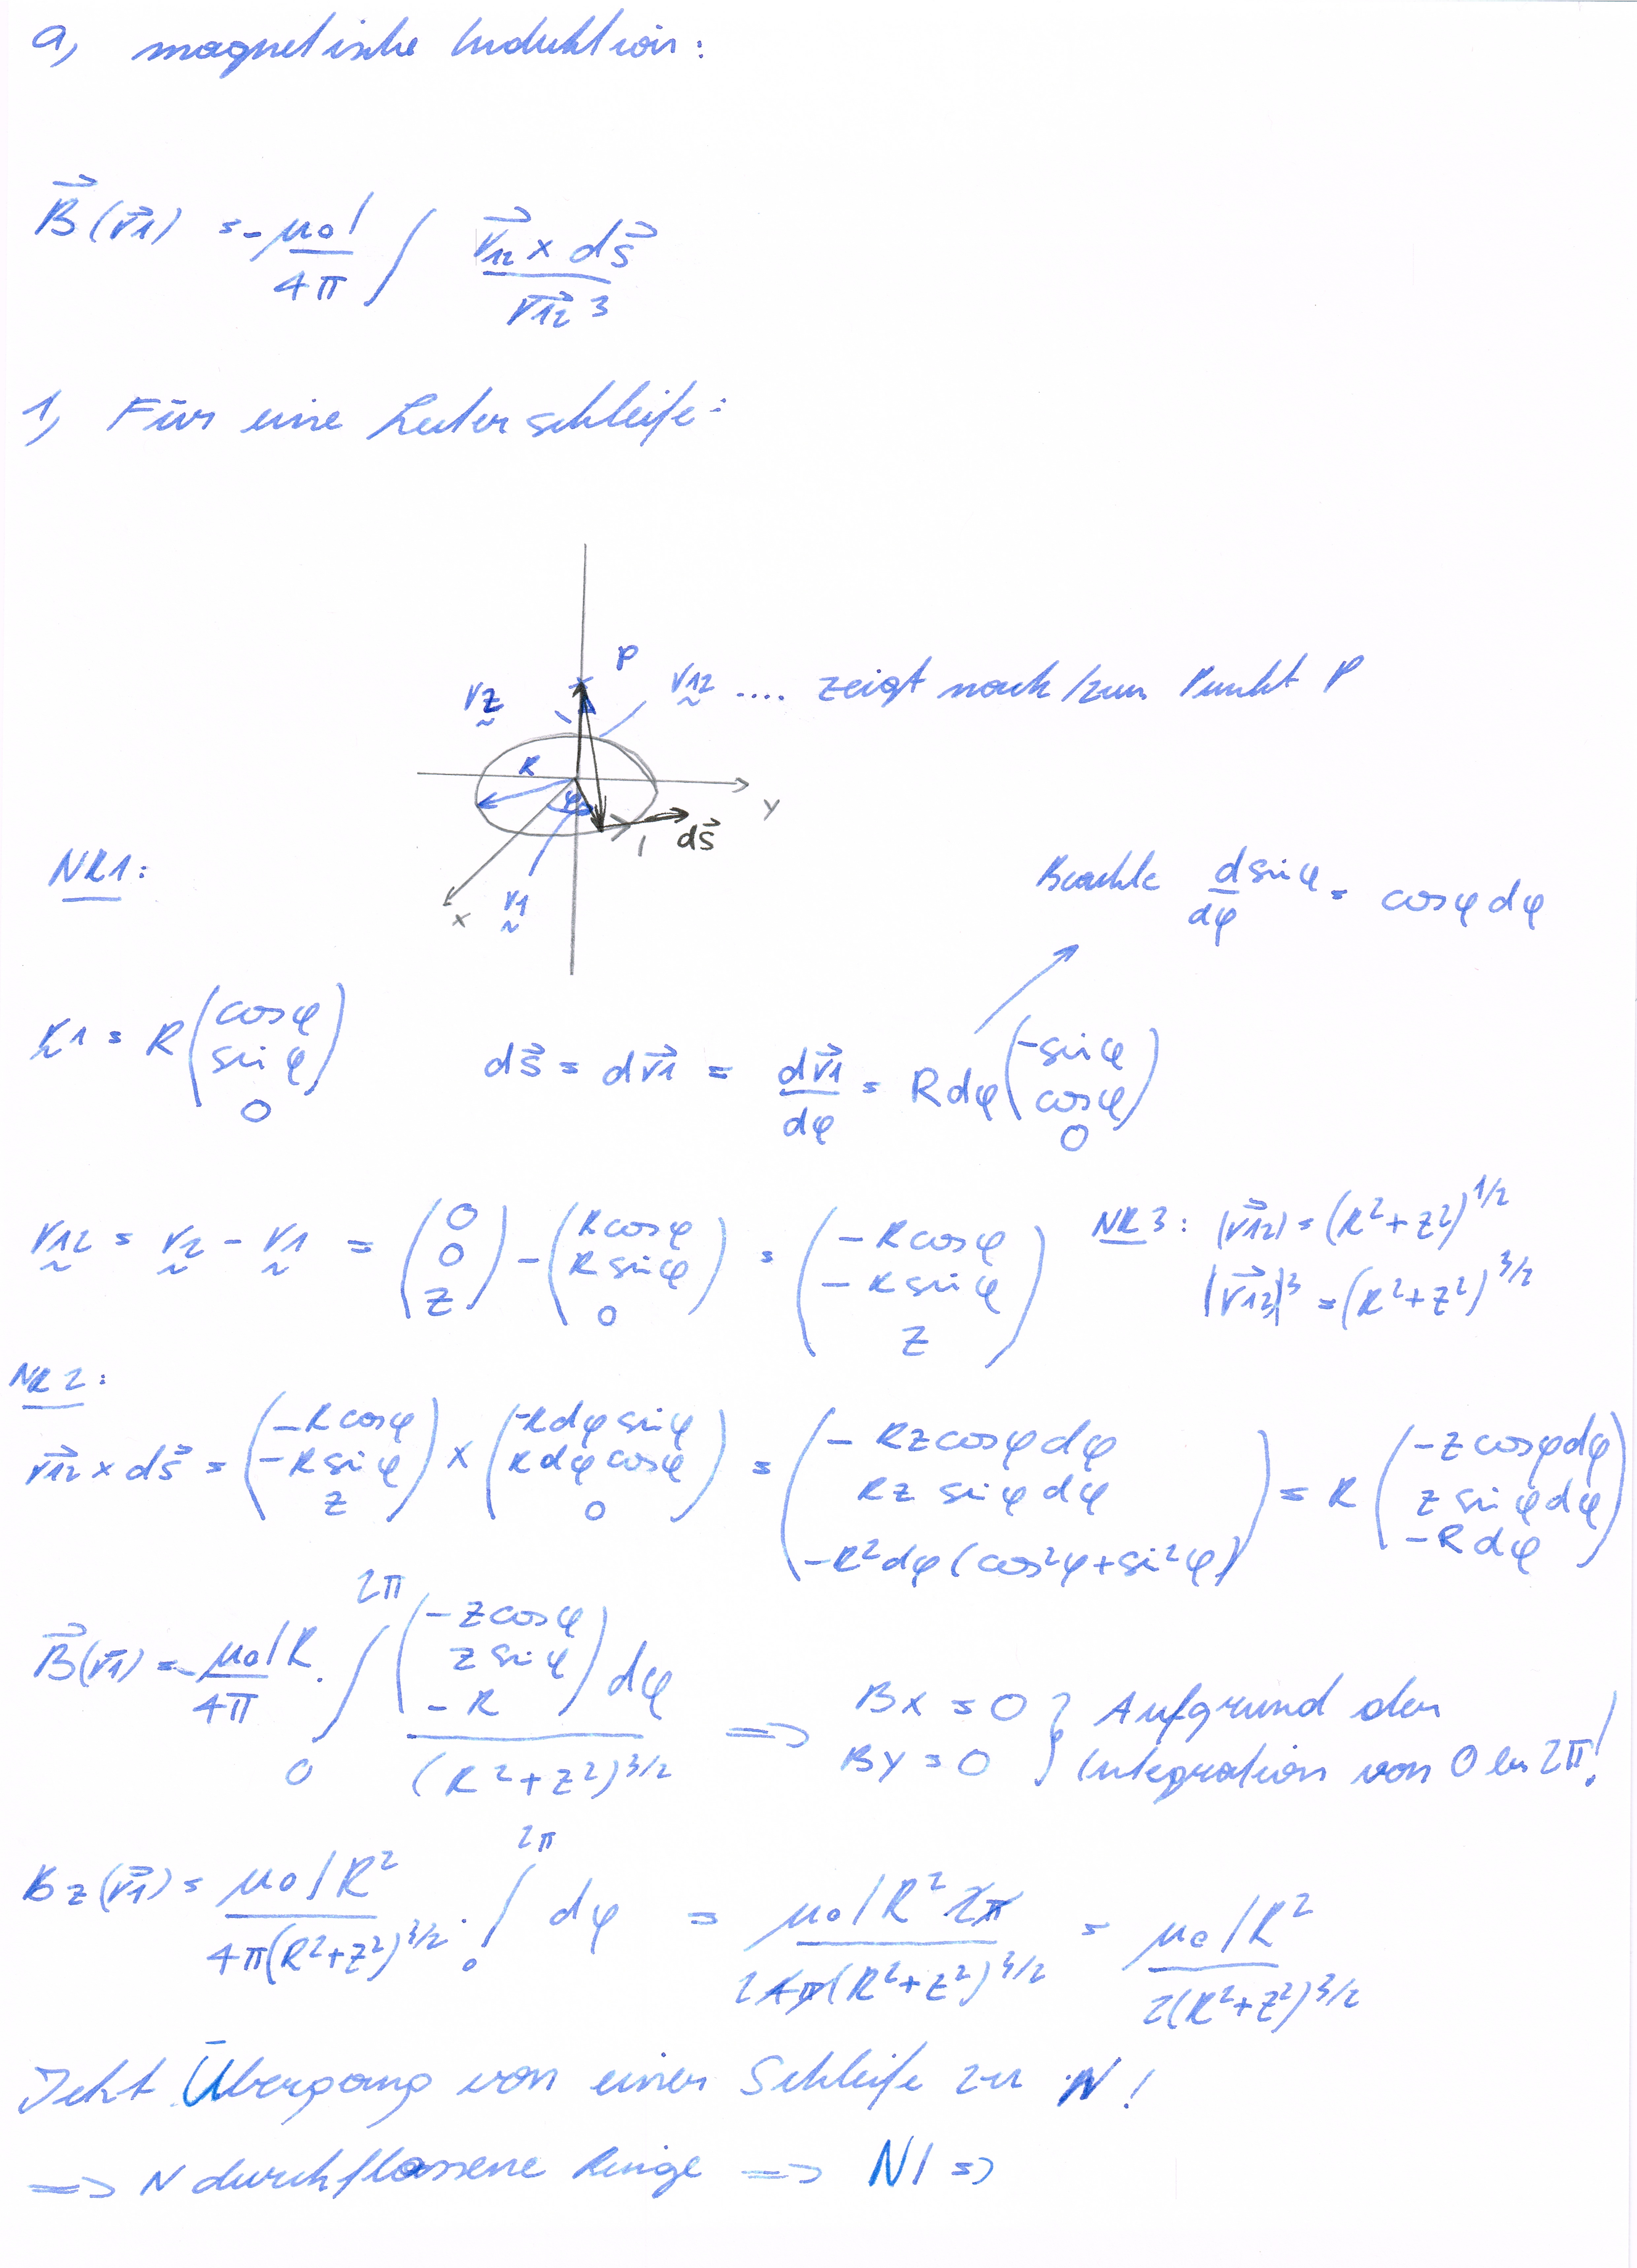 a, magnetische Induktion:
B⃗(r⃗1) = - μ0 I / 4π ∫ r⃗12 × ds⃗ / r⃗12 3
1, Für eine Leiterschleife:
P
rz
r12 .... zeigt nach/zum Punkt P
R
φ
y
I
ds⃗
x
r1
NR1:
Beachte d sinφ / dφ = cosφ dφ
r1 = R (cosφ, sinφ, 0)
ds⃗ = dr⃗1 = dr⃗1 / dφ = R dφ (-sinφ, cosφ, 0)
r12 = r2 - r1 = (0, 0, z) - (R cosφ, R sinφ, 0) = (-R cosφ, -R sinφ, z)
NR3: |r⃗12| = (R²+z²)^1/2
|r⃗12|³ = (R²+z²)^3/2
NR2:
r⃗12 × ds⃗ = (-R cosφ, -R sinφ, z) × (-R dφ sinφ, R dφ cosφ, 0) = (-Rz cosφ dφ, Rz sinφ dφ, -R² dφ (cos²φ + sin²φ)) = R (-z cosφ dφ, z sinφ dφ, -R dφ)
B⃗(r⃗1) = - μ0 I R / 4π · ∫ 0 2π (-z cosφ, z sinφ, -R) dφ / (R²+z²)^3/2 => Bx = 0
By = 0 } Aufgrund der
Integration von 0 bis 2π!
Bz(r⃗1) = μ0 I R² / 4π(R²+z²)^3/2 · ∫ 0 2π dφ = μ0 I R² 2π / 2 4π (R²+z²)^3/2 = μ0 I R² / 2(R²+z²)^3/2
Jetzt Übergang von einer Schleife zu N!
=> N durchflossene Ringe => NI =>